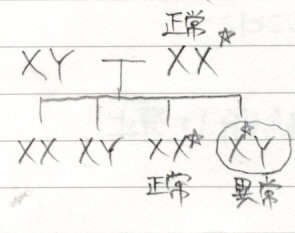 正常
XY XX☆
XX XY XX☆ X☆Y
正常 異常